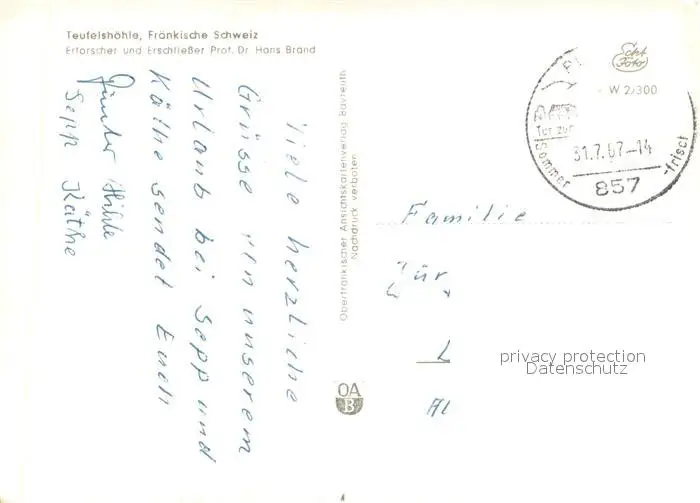 Teufelshöhle, Fränkische Schweiz
Erforscher und Erschließer Prof. Dr. Hans Brand
Viele herzliche
Grüsse von unserem
Urlaub bei Sepp und
Käthe sendet Euch
Günter
Sepp Käthe
Oberfränkischer Ansichtskartenverlag Bayreuth
Nachdruck verboten
OA
B
Echt
Foto
W 2/300
Tor zur
31.7.67-14
Sommer -frisch
857
Familie
privacy protection
Datenschutz